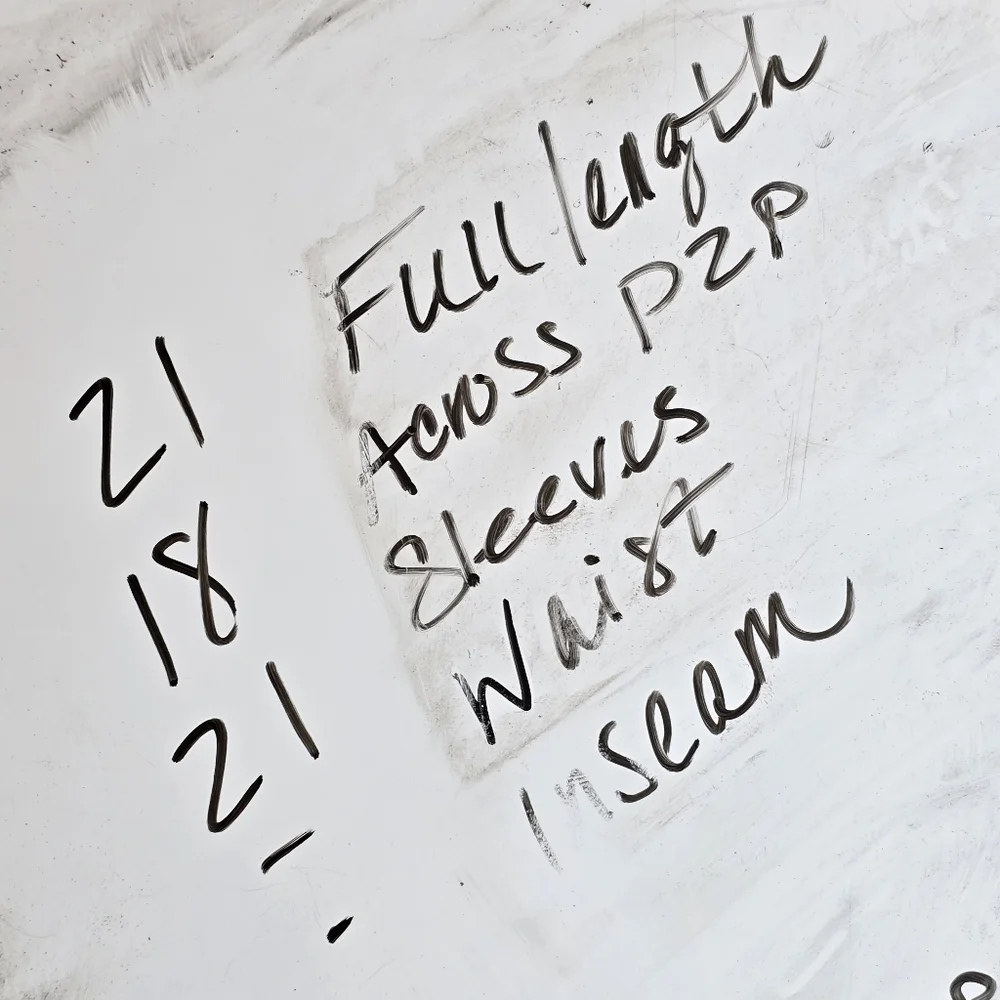 21 Full length
18 Across P2P
21 Sleeves
- Waist
- Inseam